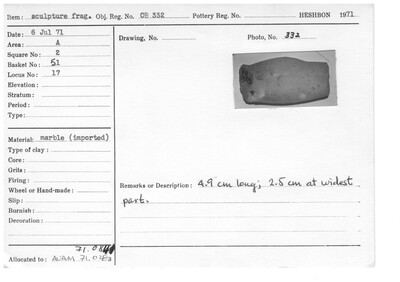 Item: sculpture frag. Obj. Reg. No. OB 332 Pottery Reg. No. HESHBON 1971
Date: 6 Jul 71
Area: A
Square No: 2
Basket No: 51
Locus No: 17
Elevation:
Stratum:
Period:
Type:
Drawing, No. Photo, No. 332
Material: marble (imported)
Type of clay:
Core:
Grits:
Firing:
Wheel or Hand-made:
Slip:
Burnish:
Decoration:
Remarks or Description: 4.9 cm long; 2.5 cm at widest
part.
Allocated to: